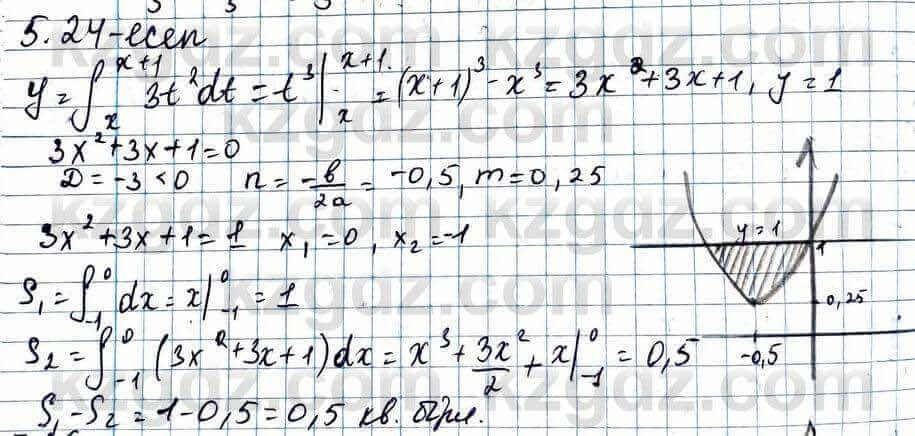 5.24-есеп
y = ∫ₓˣ⁺¹ 3t²dt = t³ |ₓˣ⁺¹ = (x+1)³ - x³ = 3x² + 3x + 1, y = 1
3x² + 3x + 1 = 0
D = -3 < 0 n = -b/2a = -0,5, m = 0,25
3x² + 3x + 1 = 1 x₁ = 0, x₂ = -1
y = 1
1
S₁ = ∫₋₁⁰ dx = x |₋₁⁰ = 1
0,25
S₂ = ∫₋₁⁰ (3x² + 3x + 1) dx = x³ + 3x²/2 + x |₋₁⁰ = 0,5
-0,5
S₁ - S₂ = 1 - 0,5 = 0,5 кв. бірл.
kzgdz.com